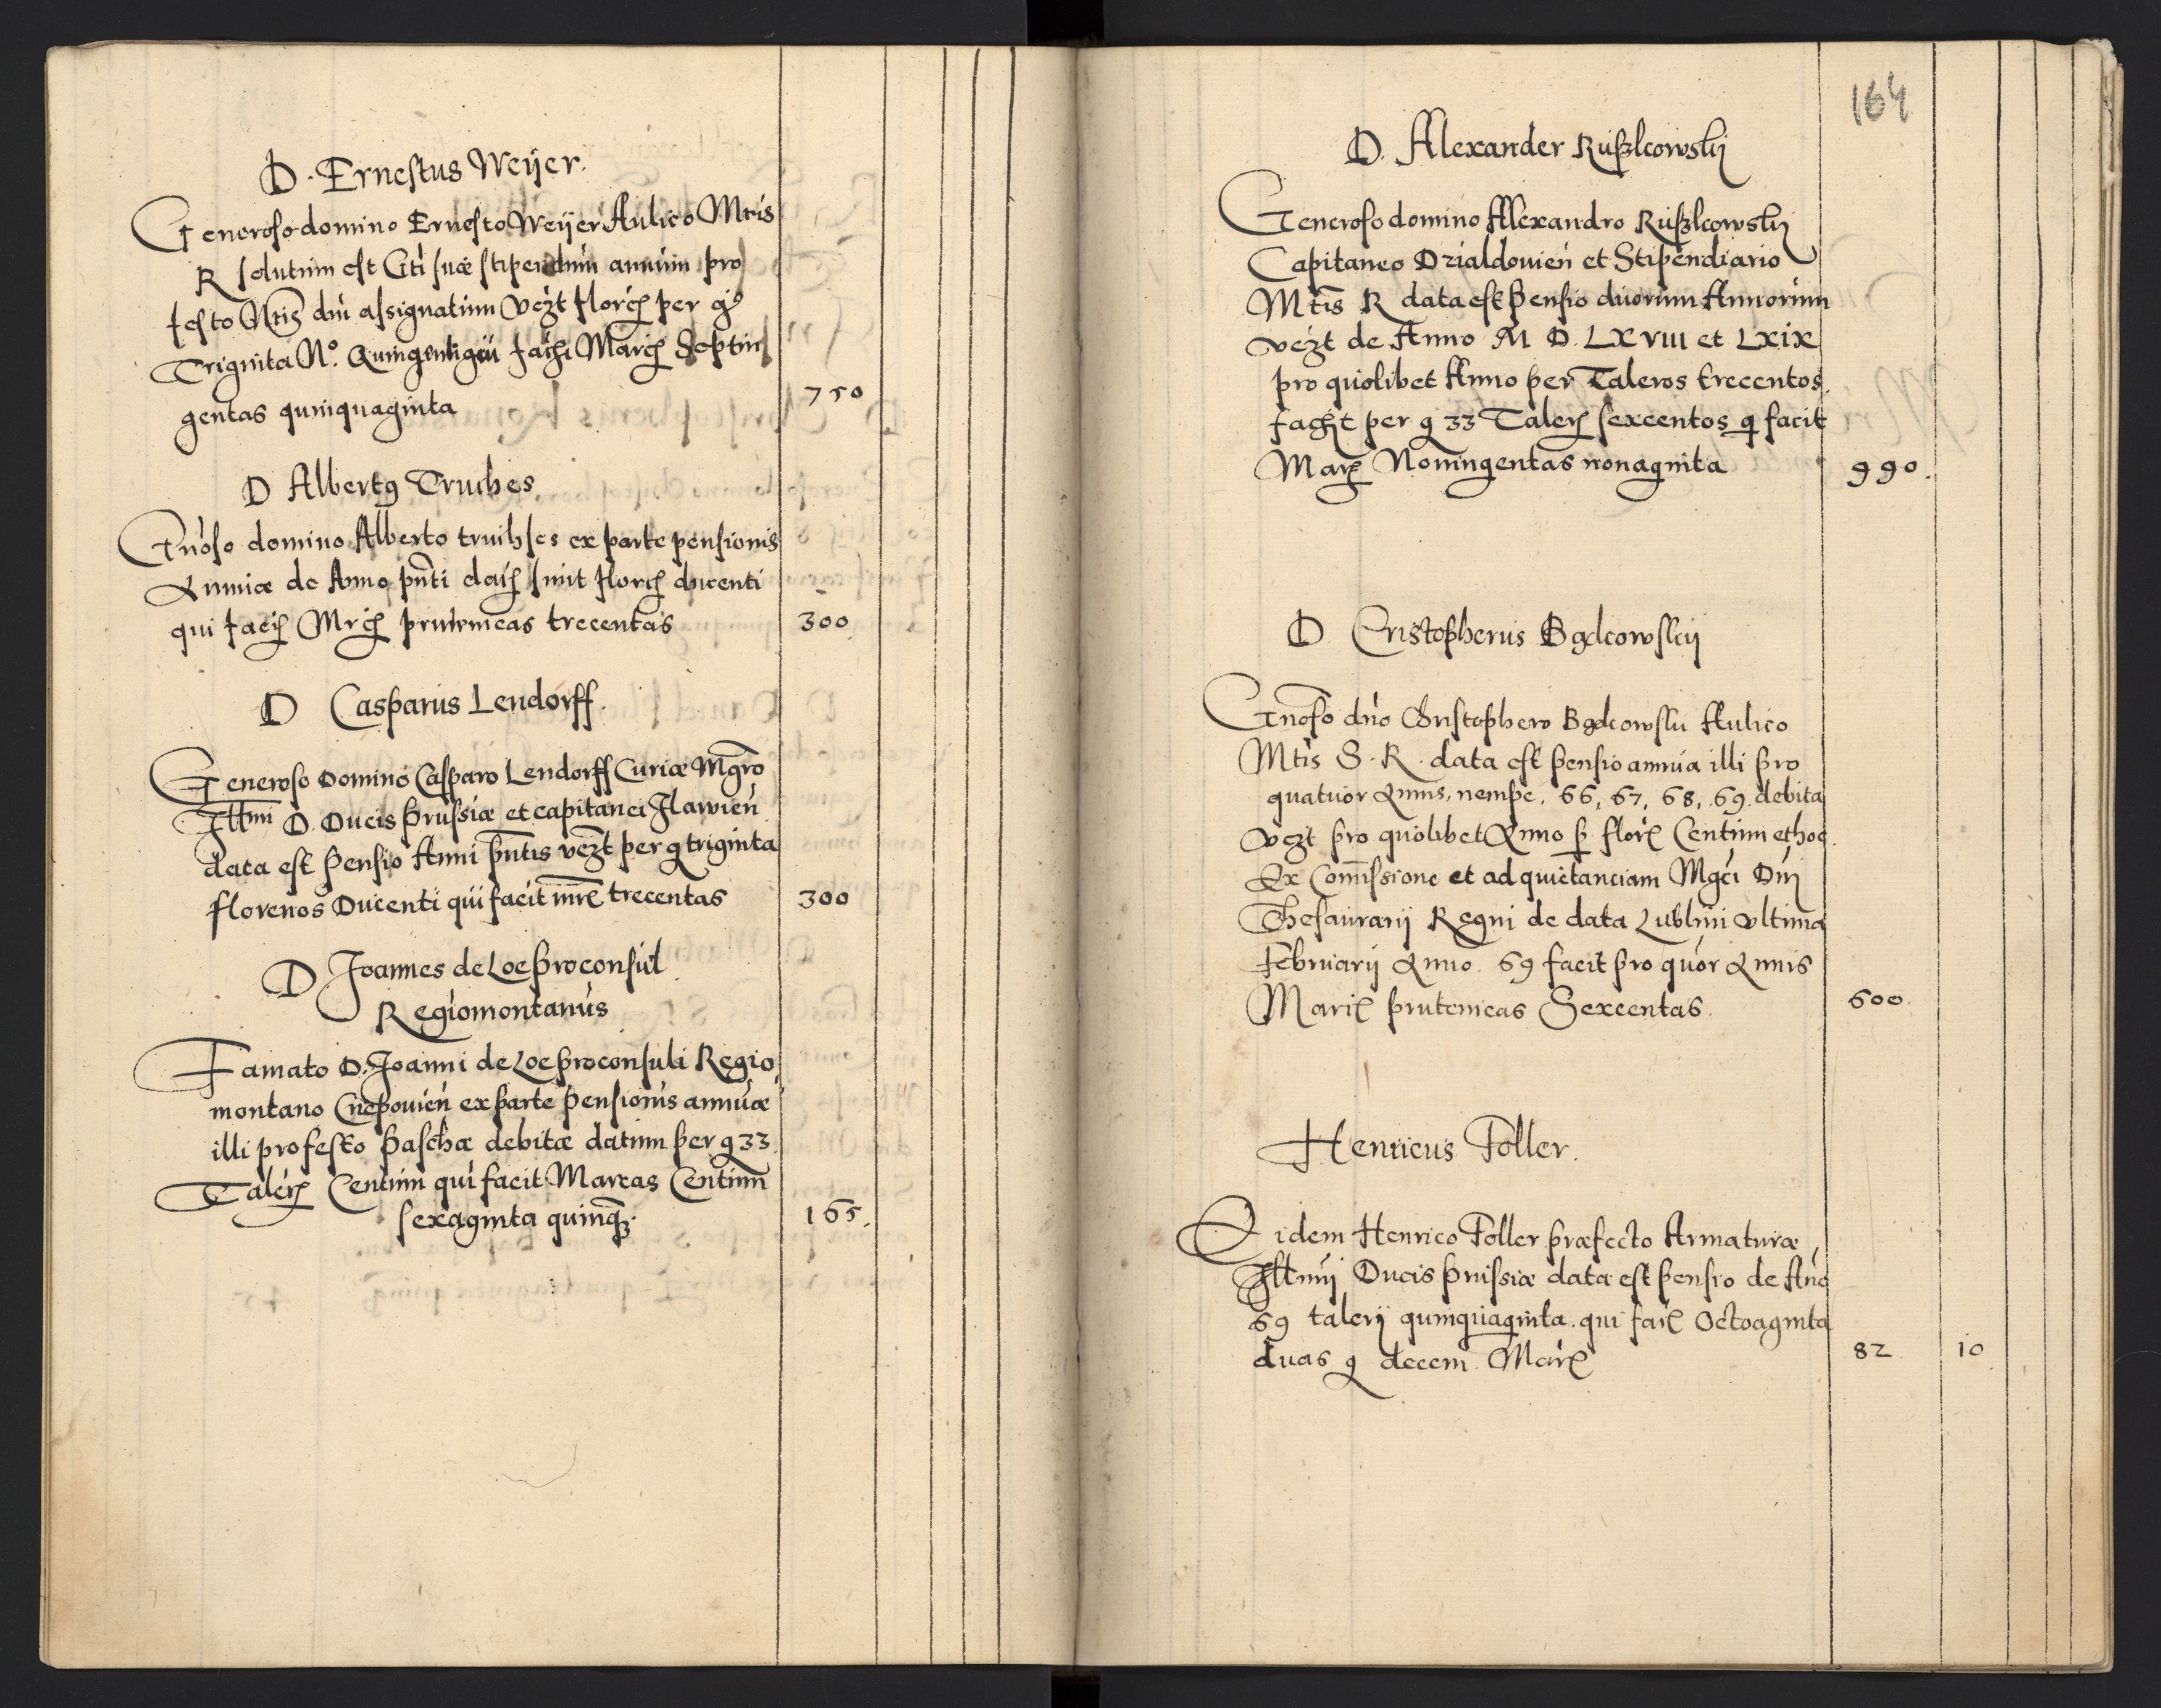 D. Ernestus Weÿer.
Generoso domino Ernesto Weÿer Aulico Mtis
R solutum est Citi suæ stipendium annuum pro
festo Ntis dni assignatum vezt florch per g
Trigintа No. Quingenti qui fach March Septin
gentas quinquaginta 750
D Albertg Truches
Gnoso domino Alberto truchses ex parte pensionis
Annuæ de Anno pnti dach sunt florch ducenti
qui facih Mrch prutenicas trecentas 300
D Casparus Lendorff.
Generoso Domino Casparo Lendorff Curiæ Mgro
Illmi D. Ducis prussiæ et capitanei Ilawien
data est pensio Anni pntis vezt per g triginta
florenos Ducenti qui facit mrc trecentas 300
D Joannes de Loe proconsul
Regiomontanus
Famato D. Joanni de Loe proconsuli Regio
montano Cnepouien ex parte pensionis annuæ
illi pro festo paschæ debitæ datum per g 33
Talerh Centum qui facit Marcas Centum
sexaginta quinqz. 165.
164
D. Alexander Ruszkowskij
Generoso domino Alexandro Ruszkowskij
Capitaneo Dzialdouien et Stipendiario
Mtis R data est pensio duorum Annorum
vezt de Anno M D. LXVIII et LXIX
pro quolibet Anno per Taleros trecentos.
facht per g 33 Talerh sexcentos q facit
Marh Noningentas nonaginta 990.
D. Cristopherus Bąkowskij
Gnoso dno Christophero Bąkowskij Aulico
Mtis S. R. data est pensio annua illi pro
quatuor Annis, nempe, 66, 67, 68, 69. debita
vezt pro quolibet Anno p flor Centum et hoc
Ex Commissione et ad quietanciam Mgci Dni
Thesaurarij Regni de data Lublini vltima
Februarij Anno. 69 facit pro quor Annis
Marc prutenicas Sexcentas. 600.
Henricus Foller.
Eidem Henrico Foller præfecto Armaturæ
Illmi Ducis prussiæ data est pensio de Ano
69 talerj quinquaginta. qui fac Octoaginta
duas g decem. Marc 82 10